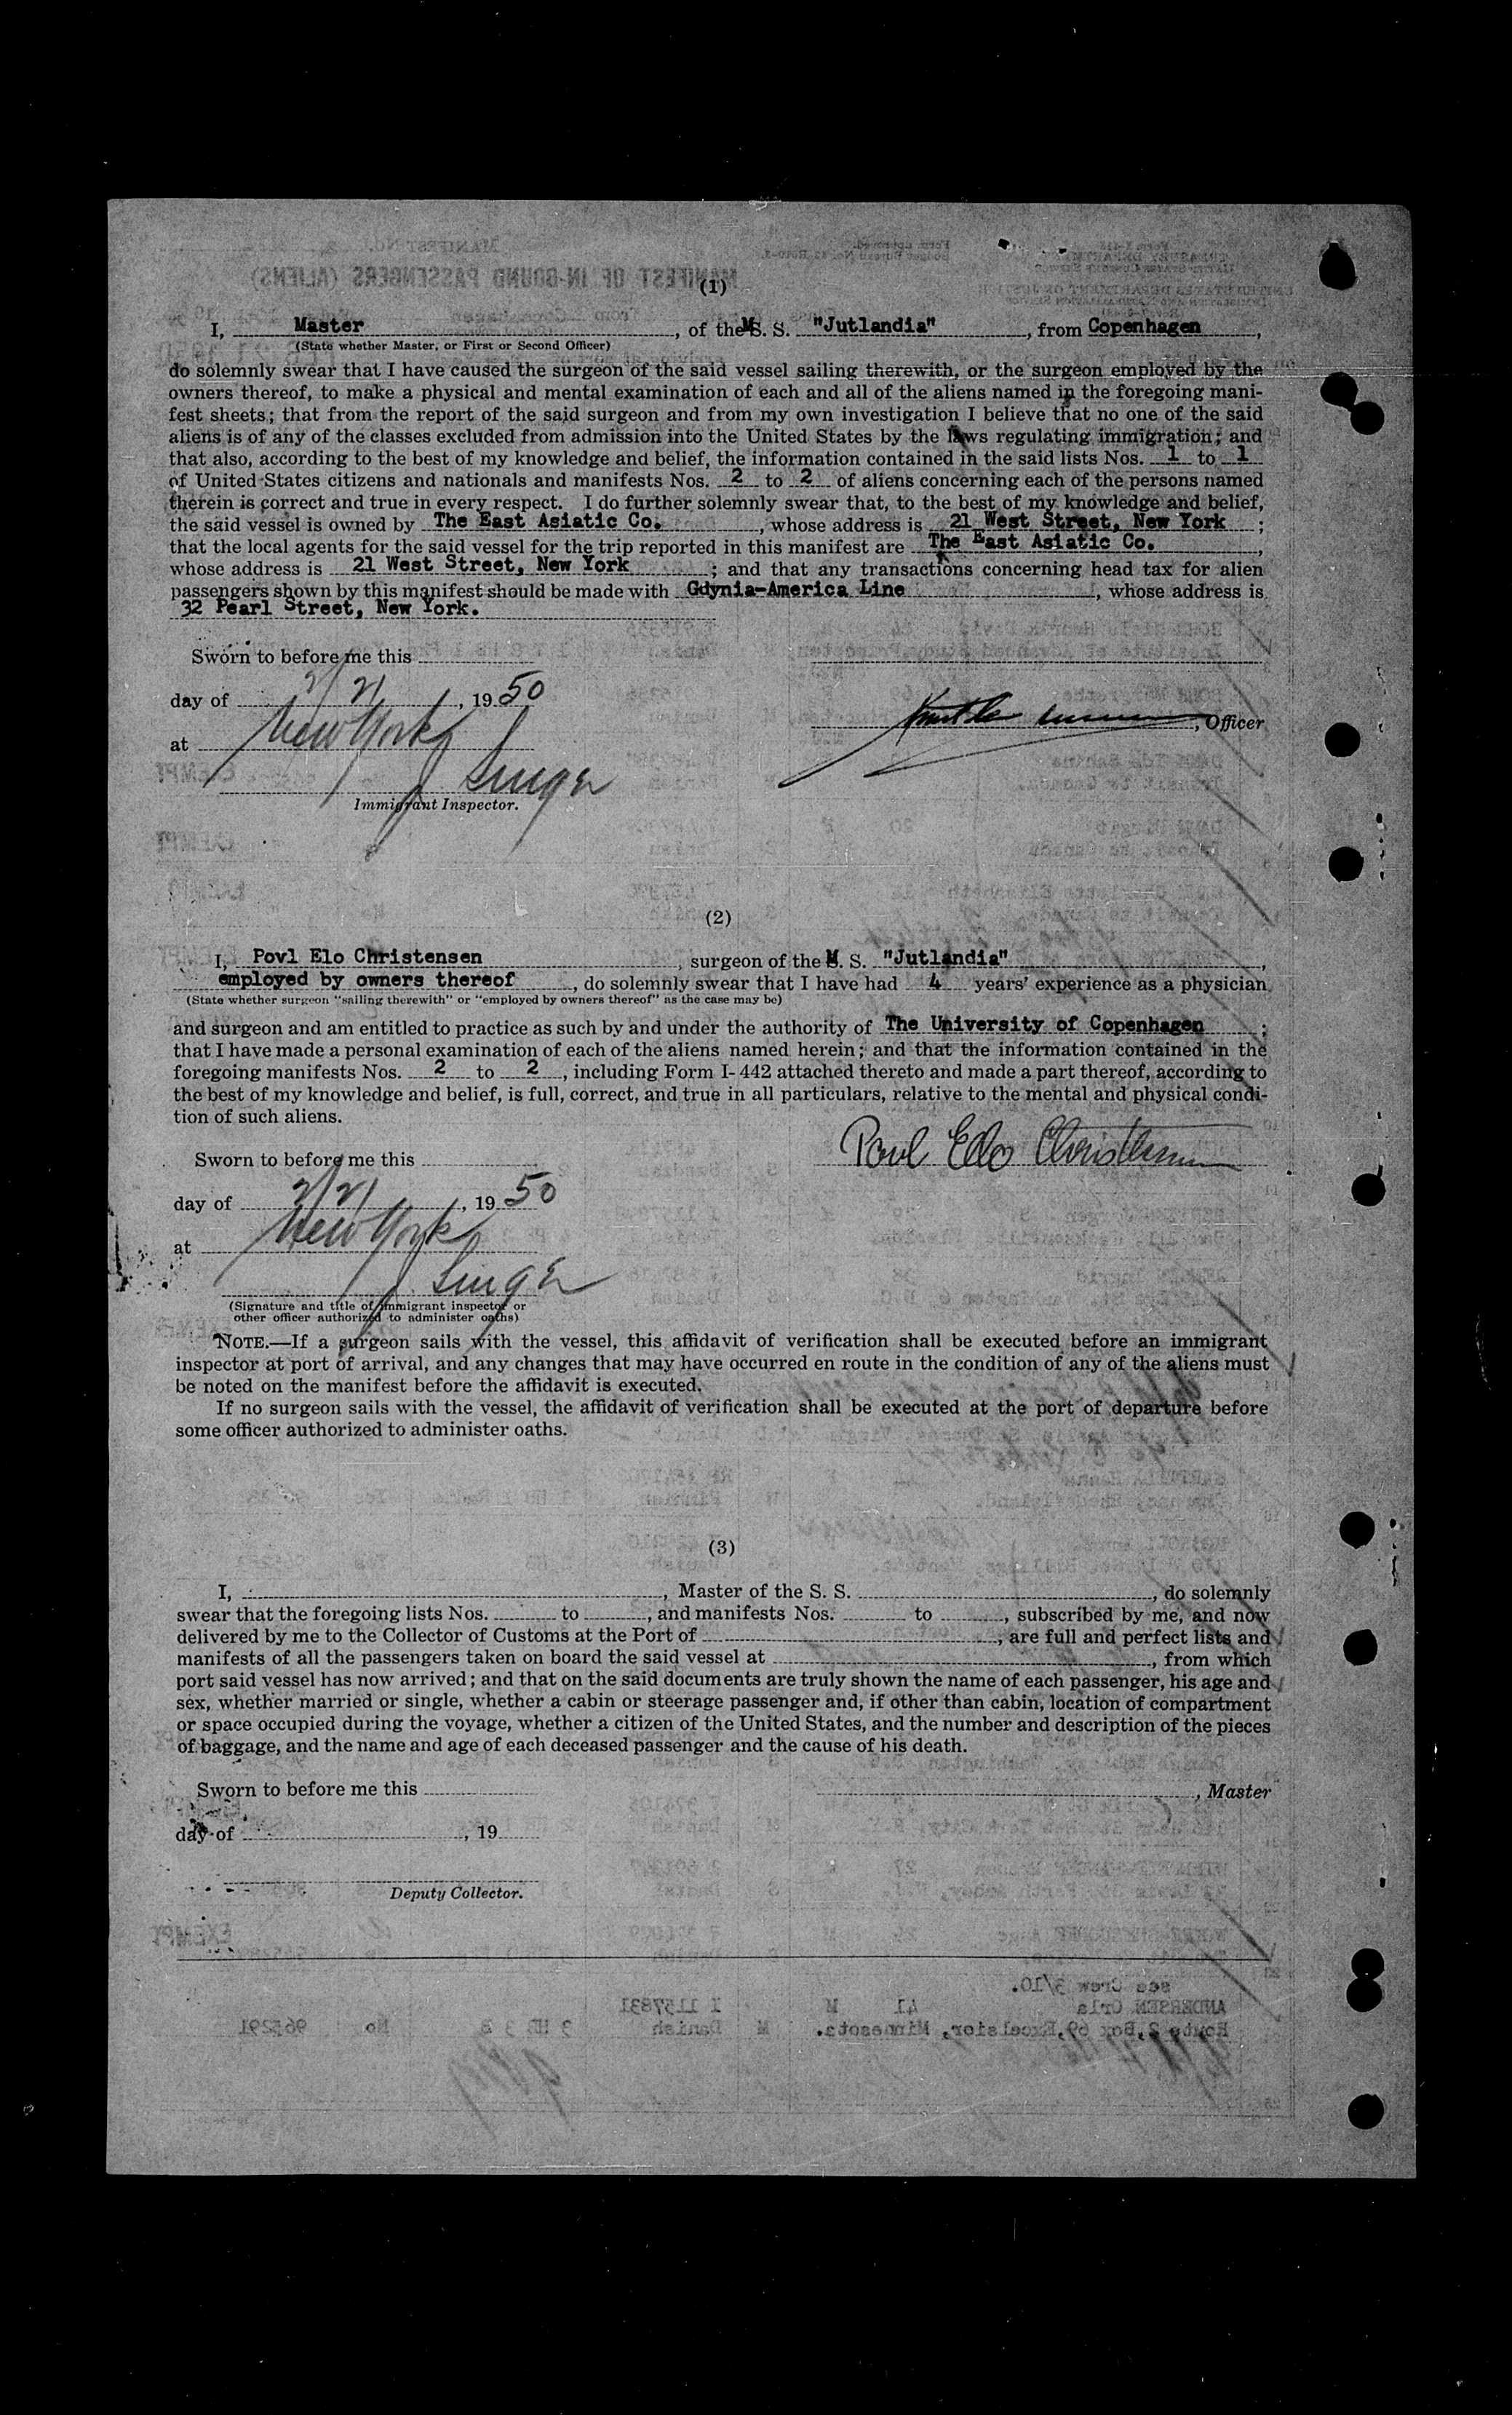 (1)
I, Master, of the M. S. "Jutlandia", from Copenhagen,
(State whether Master, or First or Second Officer)
do solemnly swear that I have caused the surgeon of the said vessel sailing therewith, or the surgeon employed by the
owners thereof, to make a physical and mental examination of each and all of the aliens named in the foregoing mani-
fest sheets; that from the report of the said surgeon and from my own investigation I believe that no one of the said
aliens is of any of the classes excluded from admission into the United States by the laws regulating immigration; and
that also, according to the best of my knowledge and belief, the information contained in the said lists Nos. 1 to 1
of United States citizens and nationals and manifests Nos. 2 to 2 of aliens concerning each of the persons named
therein is correct and true in every respect. I do further solemnly swear that, to the best of my knowledge and belief,
the said vessel is owned by The East Asiatic Co., whose address is 21 West Street, New York;
that the local agents for the said vessel for the trip reported in this manifest are The East Asiatic Co.,
whose address is 21 West Street, New York; and that any transactions concerning head tax for alien
passengers shown by this manifest should be made with Gdynia-America Line, whose address is
32 Pearl Street, New York.
Sworn to before me this
day of 2/21, 1950
, Officer
at New York
J. Singer
Immigrant Inspector.
(2)
I, Povl Elo Christensen, surgeon of the M. S. "Jutlandia",
employed by owners thereof, do solemnly swear that I have had 4 years' experience as a physician
(State whether surgeon "sailing therewith" or "employed by owners thereof" as the case may be)
and surgeon and am entitled to practice as such by and under the authority of The University of Copenhagen;
that I have made a personal examination of each of the aliens named herein; and that the information contained in the
foregoing manifests Nos. 2 to 2, including Form I-442 attached thereto and made a part thereof, according to
the best of my knowledge and belief, is full, correct, and true in all particulars, relative to the mental and physical condi-
tion of such aliens.
Povl Elo Christensen
Sworn to before me this
day of 2/21, 1950
at New York
J. Singer
(Signature and title of immigrant inspector or
other officer authorized to administer oaths)
NOTE.—If a surgeon sails with the vessel, this affidavit of verification shall be executed before an immigrant
inspector at port of arrival, and any changes that may have occurred en route in the condition of any of the aliens must
be noted on the manifest before the affidavit is executed.
If no surgeon sails with the vessel, the affidavit of verification shall be executed at the port of departure before
some officer authorized to administer oaths.
(3)
I, , Master of the S. S. , do solemnly
swear that the foregoing lists Nos. to , and manifests Nos. to , subscribed by me, and now
delivered by me to the Collector of Customs at the Port of , are full and perfect lists and
manifests of all the passengers taken on board the said vessel at , from which
port said vessel has now arrived; and that on the said documents are truly shown the name of each passenger, his age and
sex, whether married or single, whether a cabin or steerage passenger and, if other than cabin, location of compartment
or space occupied during the voyage, whether a citizen of the United States, and the number and description of the pieces
of baggage, and the name and age of each deceased passenger and the cause of his death.
Sworn to before me this
, Master
day of , 19
Deputy Collector.